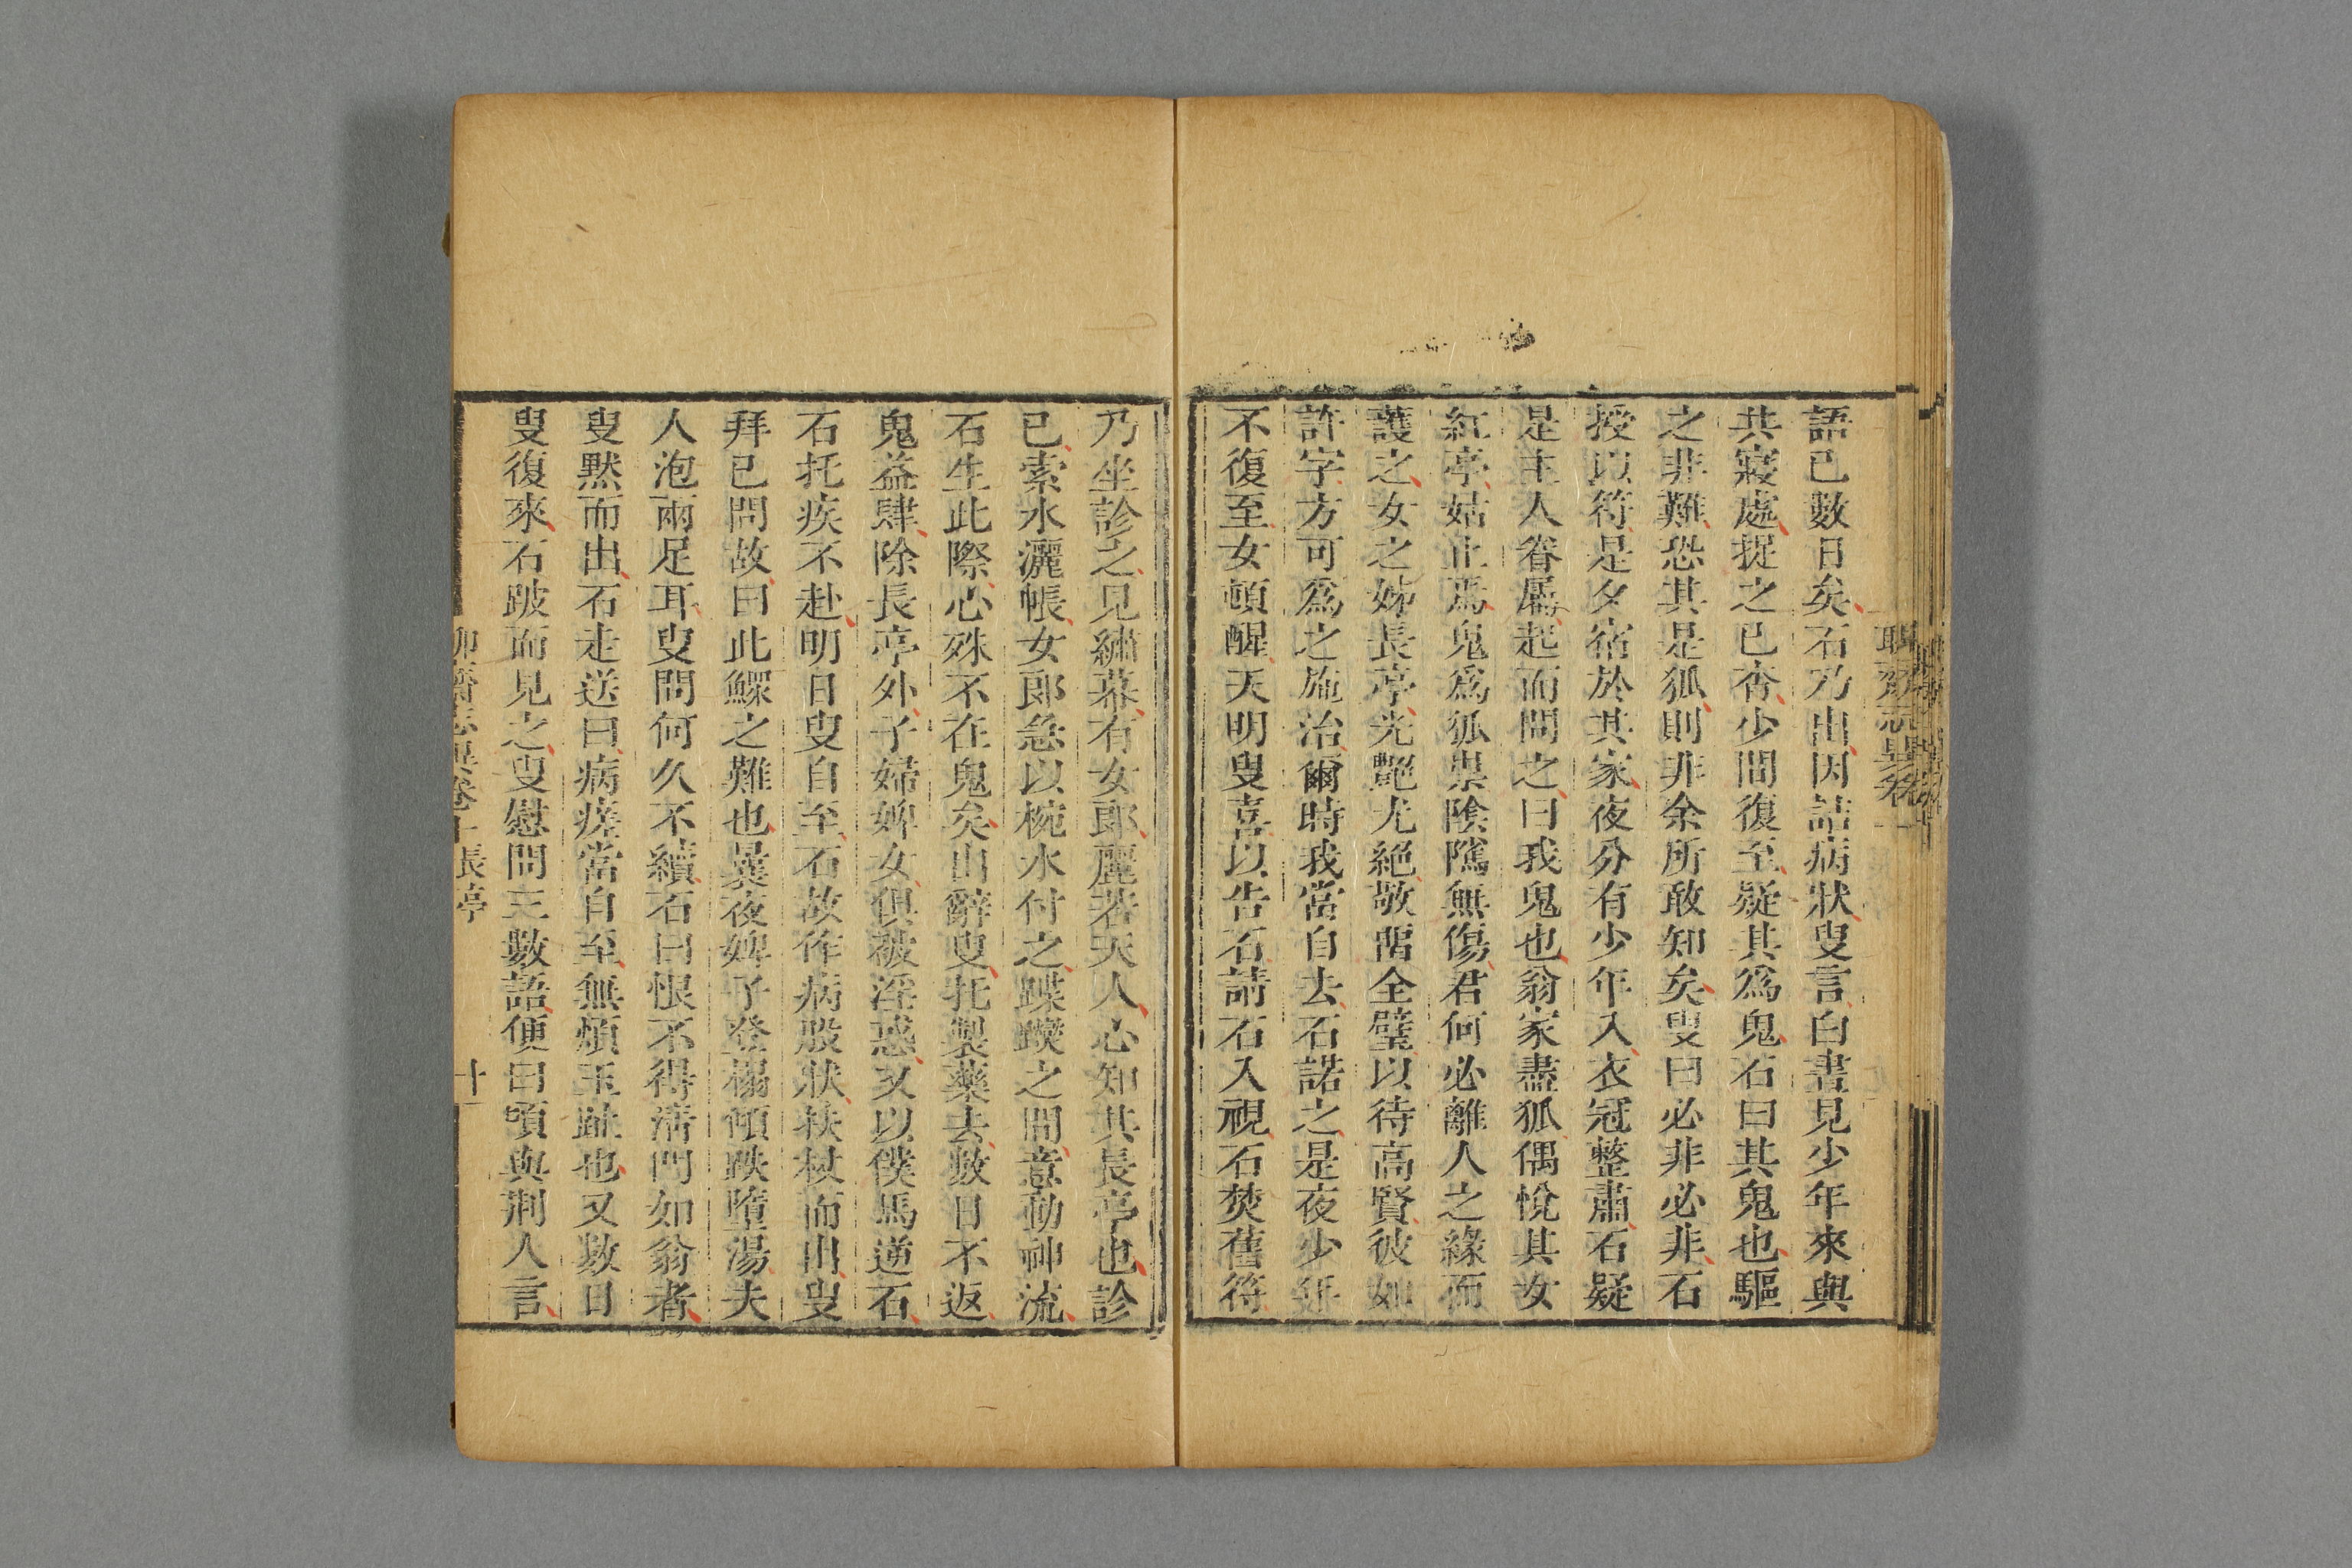 語已數日矣石乃出因詰病狀叟言白晝見少年來與
共寢處捉之已杳少間復至疑其爲鬼石曰其鬼也驅
之非難恐其是狐則非余所敢知矣叟曰必非必非石
授以符是夕宿於其家夜分有少年入衣冠整肅石疑
是主人眷屬起而問之曰我鬼也翁家盡狐偶悅其女
紅亭姑止焉鬼爲狐祟陰隲無傷君何必離人之緣而
護之女之姊長亭光艷尤絕敬畱全璧以待高賢彼如
許字方可爲之施治爾時我當自去石諾之是夜少年
不復至女頓醒天明叟喜以告石請石入視石焚舊符
乃坐診之見繡幕有女郎麗若天人心知其長亭也診
已索水灑帳女郎急以椀水付之蹀躞之間意動神流
石生此際心殊不在鬼矣出辭叟托製藥去數日不返
鬼益肆除長亭外子婦婢女俱被淫惑又以僕馬逆石
石托疾不赴明日叟自至石故作病股狀扶杖而出叟
拜已問故曰此鰥之難也曩夜婢子登榻傾跌墮湯夫
人泡兩足耳叟問何久不續石曰恨不得淸門如翁者
叟默而出石走送曰病瘥當自至無煩玉趾也又數日
叟復來石跛而見之叟慰問三數語便曰頃與荆人言
聊齋志異卷十 長亭 十一